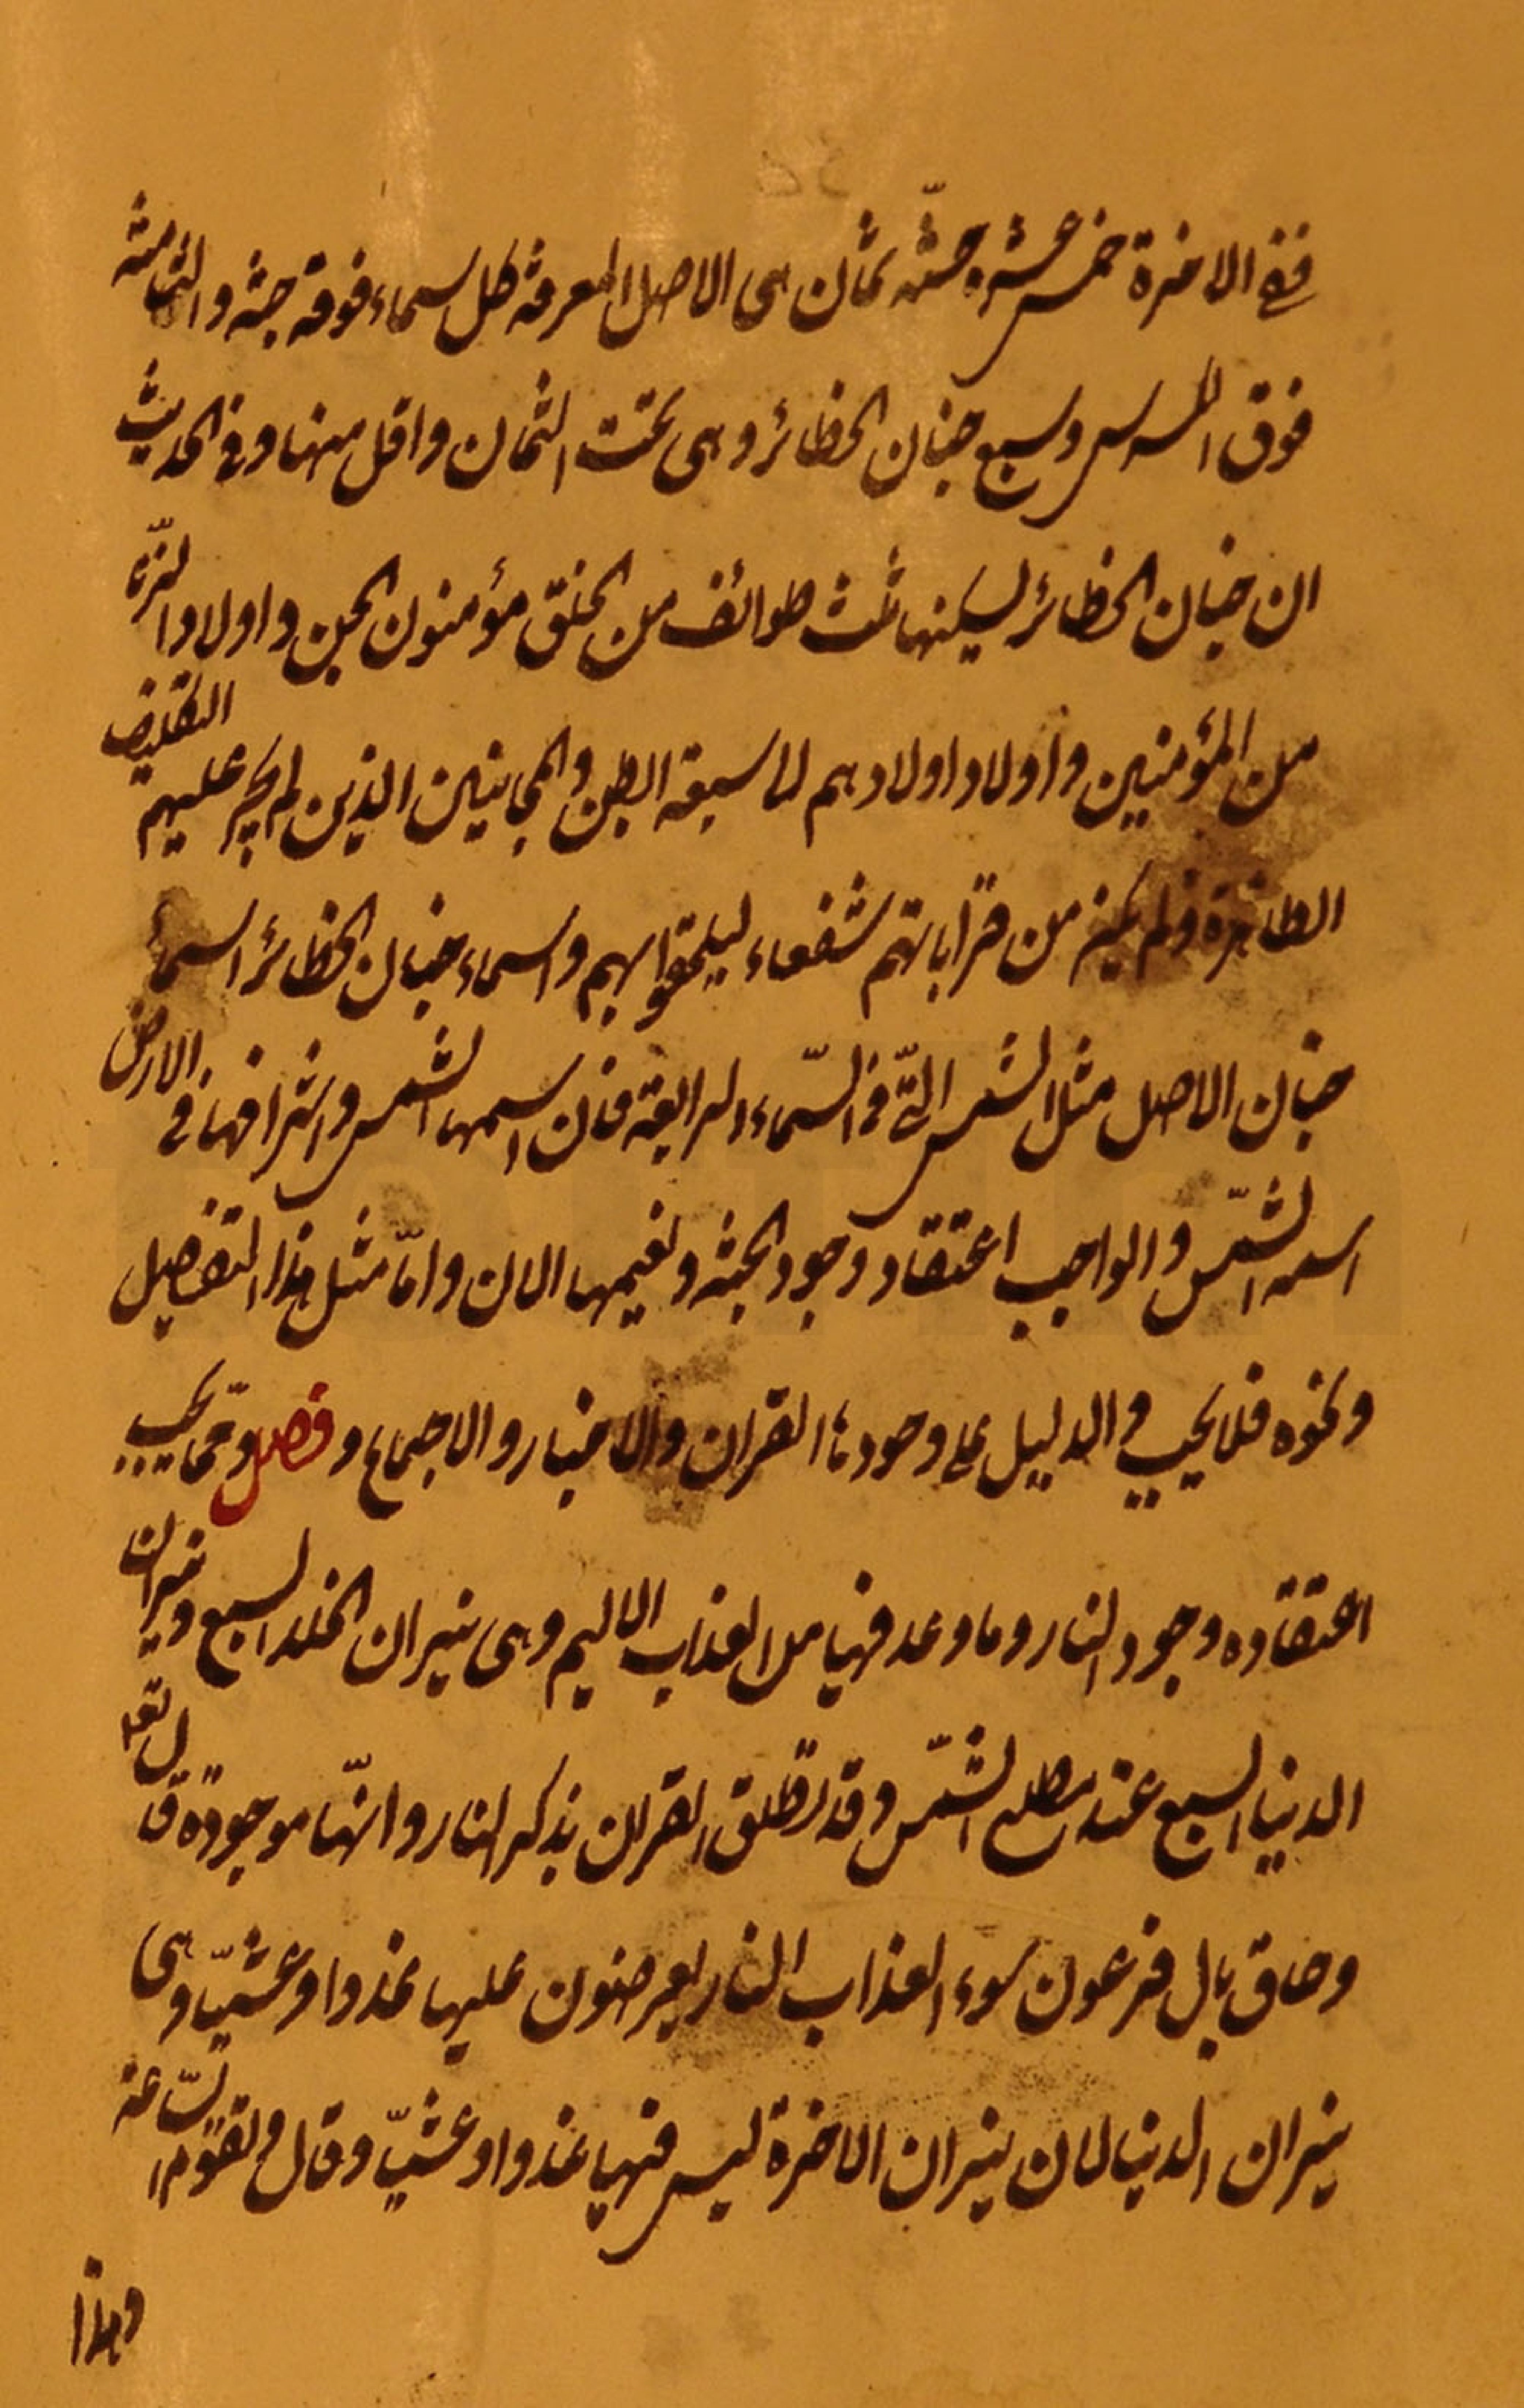 ففي الاخرة خمس عشرة جنّة ثمان هى الاصل المعرفة كل سماء فوقه جنة والثامنة
فوق الكرسى وسبع جنان الحظائر وهى تحت الثمان واقل منها وفى الحديث
ان جنان الحظائر يسكنها ثلث طوائف من الخلق مؤمنون الجن واولاد الزنا
من المؤمنين واولاد اولادهم الى سبعة ابطن والمجانين الذين لم يجر عليهم التكليف
الظاهرة ولم يكن من قراباتهم شفعاء ليلحقوا بهم واسماء جنان الحظائر اسماء
جنان الاصل مثل الشمس التّى فى السّماء الرابعة فان اسمها الشمس واشراقها فى الارض
اسمه الشمّس والواجب اعتقاد وجود الجنة ونعيمها الان وامّا مثل هذا التفصيل
ونحوه فلا يجب والدليل على وجودها القران والاخبار والاجماع و فصل وممّا يجب
اعتقاده وجود النار وما وعد فيها من العذاب الاليم وهى نيران الخلد السبع ونيران
الدنيا السبع عند مطلع الشمّس وقد نطلق القران بذكر النار وانّها موجودة قال تعا
وحاق بال فرعون سوء العذاب النار يعرضون عليها غدوا وعشيّا وهى
نيران الدنيا لان نيران الاخرة ليس فيها غدوا وعشيّا وقال ويوم تقوم السّاعة
وهذا